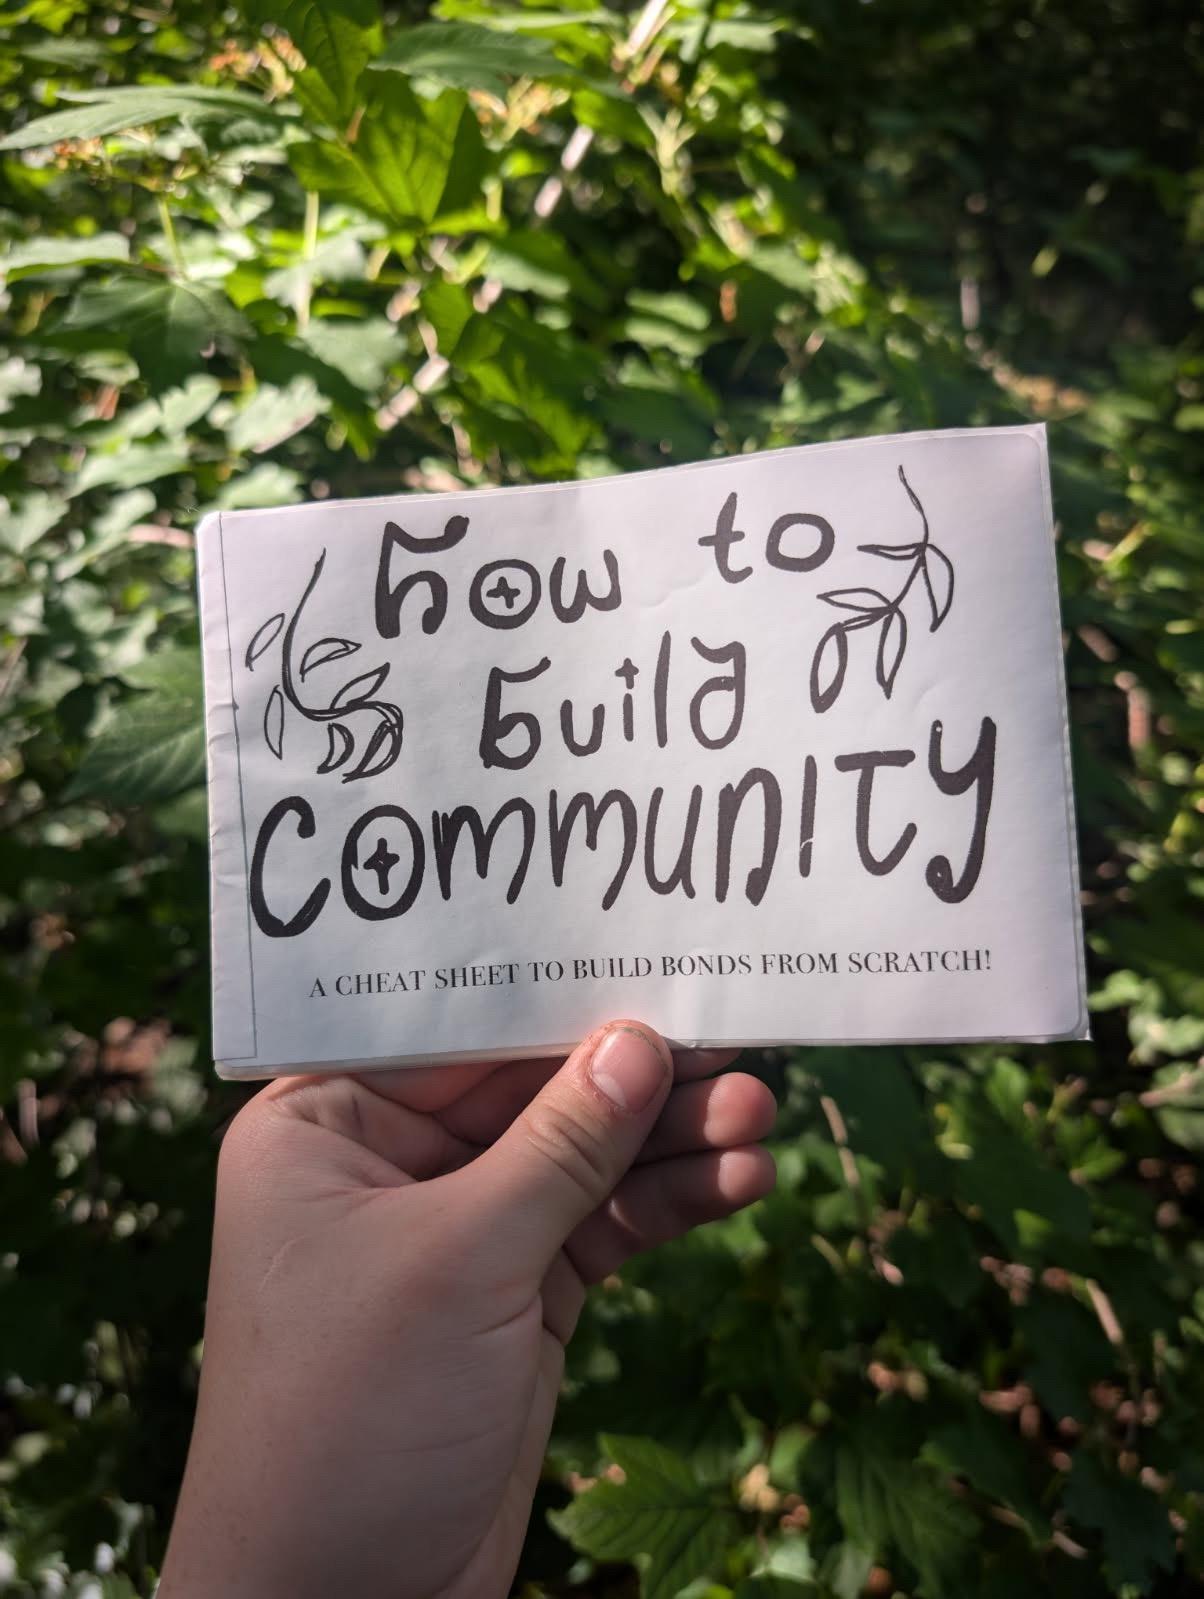 how to
build
community
A CHEAT SHEET TO BUILD BONDS FROM SCRATCH!